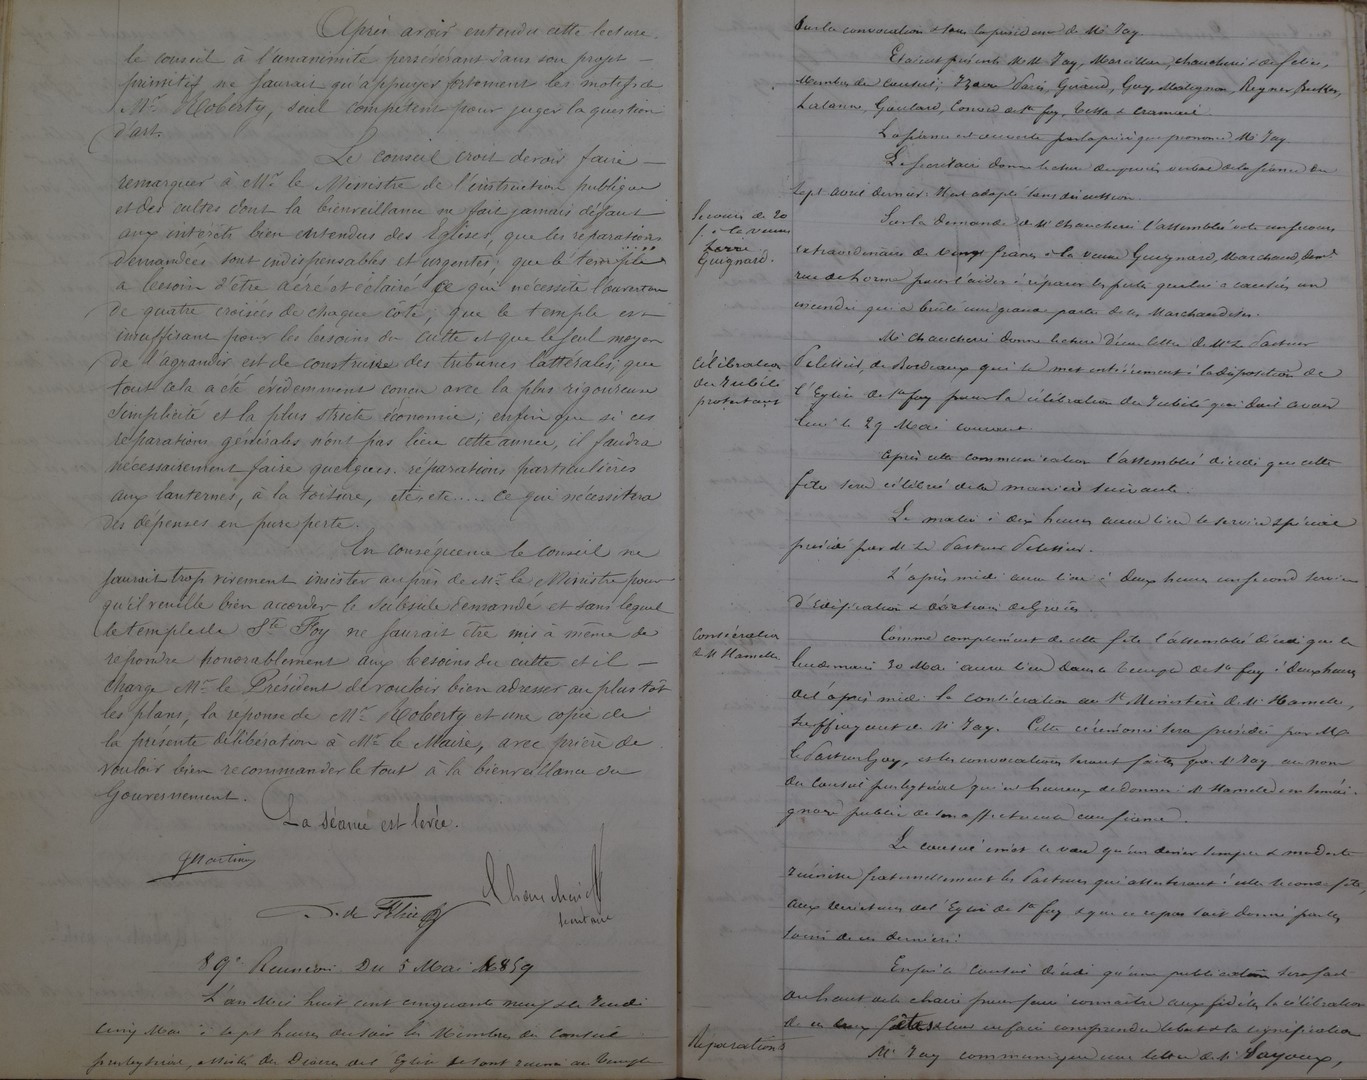 Après avoir entendu cette lecture,
le conseil à l'unanimité persévérant dans son projet
primitif ne saurait qu'appuyer fortement les motifs de
Mr Roberty, seul compétent pour juger la question
d'art.
Le conseil croit devoir faire
remarquer à Mr le Ministre de l'instruction publique
et des cultes dont la bienveillance ne fait jamais défaut
aux intérêts bien entendus des Eglises, que les réparations
demandées sont indispensables et urgentes; que le temple
a besoin d'être aéré et éclairé ce que nécessite l'ouverture
de quatre croisées de chaque côté; que le temple est
insuffisant pour les besoins du culte et que le seul moyen
de l'agrandir est de construire des tribunes lattérales; que
tout cela a été évidemment conçu avec la plus rigoureuse
simplicité et la plus stricte économie; enfin que si ces
réparations générales n'ont pas lieu cette année, il faudra
nécessairement faire quelques réparations particulières
aux lanternes, à la toiture, etc, etc.... ce qui nécessitera
des dépenses en pure perte.
En conséquence le conseil ne
saurait trop vivement insister auprès de Mr le Ministre pour
qu'il veuille bien accorder le subside demandé et sans lequel
le temple de Ste Foy ne saurait être mis à même de
repondre honorablement aux besoins du culte et il
charge Mr le Président de vouloir bien adresser au plus tôt
les plans, la réponse de Mr Roberty et une copie de
la présente délibération à Mr le Maire, avec prière de
vouloir bien recommander le tout à la bienveillance du
Gouvernement.
La séance est levée.
secrétaire
89e Reunion Du 5 Mai 1859
L'an Mil huit cent cinquante neuf & le Jeudi
cinq Mai à sept heures du soir les Membres du Conseil
presbytéral, assistés des Diacres de l'Eglise se sont réunis au Temple
Sur la convocation & sous la présidence de Mr Jay
Etaient présents MM Jay, Chaucherie & de
Membres du Conseil; Girard, Guy, Matignon, Reynier,
Lalanne, Goulard, de Ste foy,
La séance est ouverte par la prière que prononce Mr Jay.
Le secrétaire donne lecture du procès verbal de la séance du
sept avril dernier. Il est adopté sans discussion.
Secours de 20
f à la veuve
Guignard.
Sur la demande de Mr Chaucherie l'assemblée vote un secours
extraordinaire de vingt francs à la veuve Guignard, Marchande,
rue de l'orme pour l'aider à réparer les pertes que lui a causées un
incendie qui a brûlé une grande partie de ses Marchandises.
Célébration
du Jubilé
protestant
Mr Chaucherie donne lecture d'une lettre de Mr Le Pasteur
Pelissier, de Bordeaux qui se met entièrement à la disposition de
l'Eglise de Ste foy pour la célébration du Jubilé qui doit avoir
lieu le 29 Mai courant.
Après cette communication l'assemblée décide que cette
fête sera célébrée de la manière suivante.
Le matin à dix heures aura lieu le service spécial
présidé par Mr Le Pasteur Pelissier.
L'après midi aura lieu à deux heures un second service
d'Edification & d'actions de Grâces.
Consécration
de Mr Hamelle
Comme complément de cette fête l'assemblée décide que le
lendemain 30 Mai aura lieu dans le temple de Ste foy à deux heures
de l'après midi la consécration au St Ministère de Mr Hamelle,
suffragant de Mr Jay. Cette cérémonie sera présidée par Mr
le Pasteur Guy, et les convocations seront faites par Mr Jay au nom
du Conseil presbytéral qui est heureux de donner à Mr Hamelle un témoi-
gnage public de son affectueuse confiance.
Le conseil émet le vœu qu'un dîner simple & modeste
réunisse fraternellement les Pasteurs qui assisteront à cette seconde fête
aux de l'Eglise de Ste foy & que ce repas soit donné par les
soins de ces derniers.
Enfin le Conseil décide qu'une publication sera faite
du haut de la chaire pour faire connaître aux fidèles la célébration
de ces deux fêtes & leur en faire comprendre le but & la signification
Réparations
Mr Jay communique une lettre de Mr Sayoux,